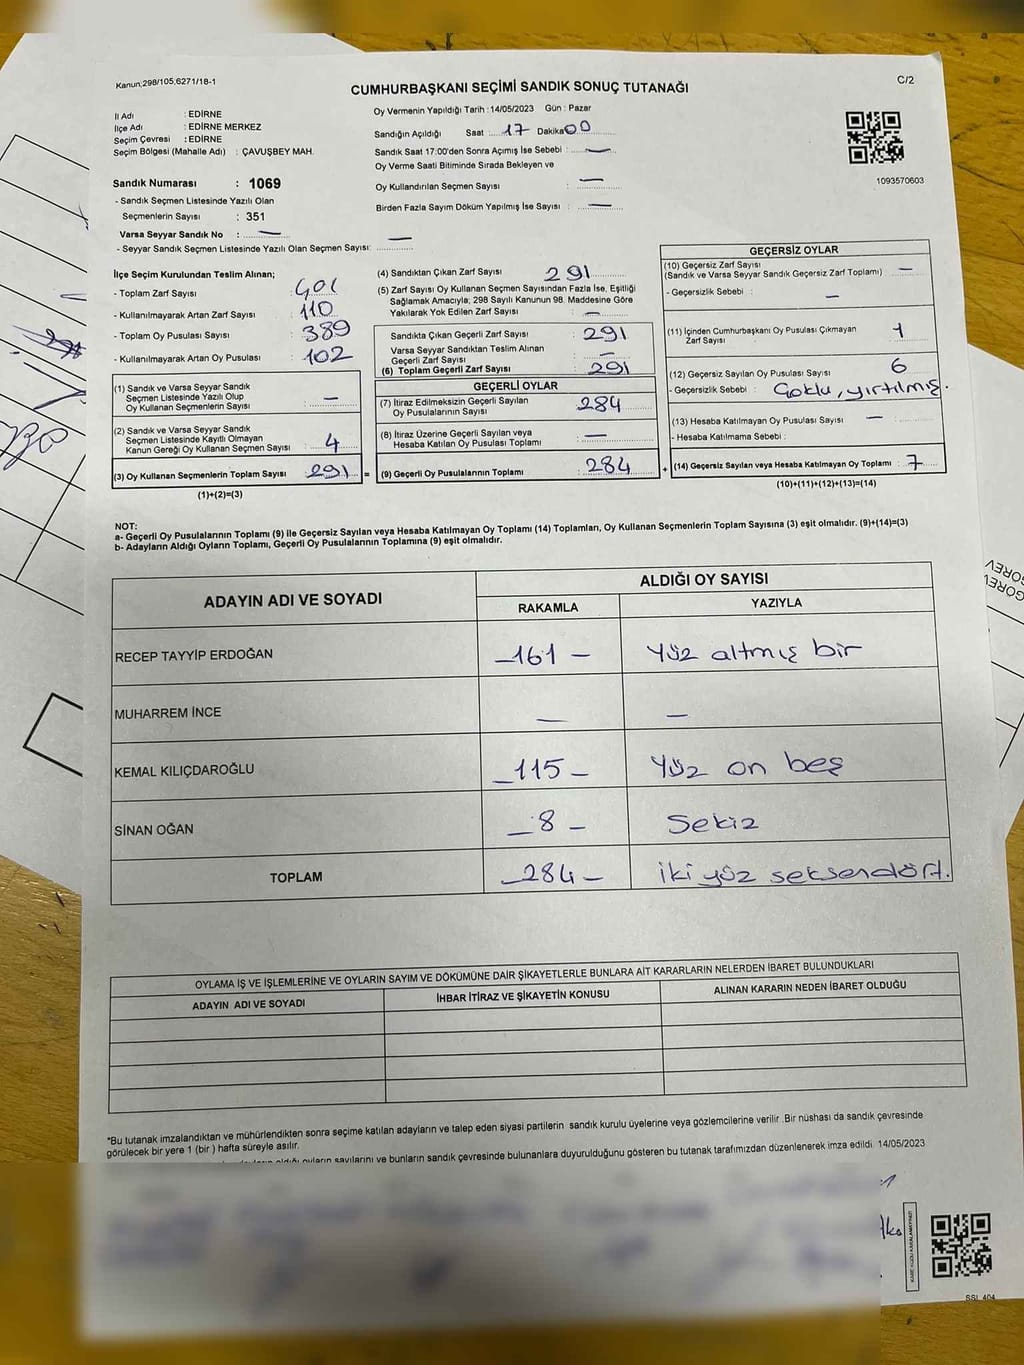 Kanun,298/105,6271/18-1
C/2
CUMHURBAŞKANI SEÇİMİ SANDIK SONUÇ TUTANAĞI
İl Adı : EDİRNE
İlçe Adı : EDİRNE MERKEZ
Seçim Çevresi : EDİRNE
Seçim Bölgesi (Mahalle Adı) : ÇAVUŞBEY MAH.
Sandık Numarası : 1069
- Sandık Seçmen Listesinde Yazılı Olan
Seçmenlerin Sayısı : 351
Varsa Seyyar Sandık No : —
- Seyyar Sandık Seçmen Listesinde Yazılı Olan Seçmen Sayısı: —
Oy Vermenin Yapıldığı Tarih : 14/05/2023 Gün : Pazar
Sandığın Açıldığı Saat 17 Dakika 00
Sandık Saat 17:00'den Sonra Açımış İse Sebebi : —
Oy Verme Saati Bitiminde Sırada Bekleyen ve
Oy Kullandırılan Seçmen Sayısı : —
Birden Fazla Sayım Döküm Yapılmış İse Sayısı : —
1093570603
İlçe Seçim Kurulundan Teslim Alınan;
- Toplam Zarf Sayısı : 401
- Kullanılmayarak Artan Zarf Sayısı : 110
- Toplam Oy Pusulası Sayısı : 389
- Kullanılmayarak Artan Oy Pusulası : 102
(1) Sandık ve Varsa Seyyar Sandık
Seçmen Listesinde Yazılı Olup
Oy Kullanan Seçmenlerin Sayısı : —
(2) Sandık ve Varsa Seyyar Sandık
Seçmen Listesinde Kayıtlı Olmayan
Kanun Gereği Oy Kullanan Seçmen Sayısı : 4
(3) Oy Kullanan Seçmenlerin Toplam Sayısı : 291 =
(1)+(2)=(3)
(4) Sandıktan Çıkan Zarf Sayısı : 291
(5) Zarf Sayısı Oy Kullanan Seçmen Sayısından Fazla İse, Eşitliği
Sağlamak Amacıyla; 298 Sayılı Kanunun 98. Maddesine Göre
Yakılarak Yok Edilen Zarf Sayısı : —
Sandıkta Çıkan Geçerli Zarf Sayısı : 291
Varsa Seyyar Sandıktan Teslim Alınan
Geçerli Zarf Sayısı : —
(6) Toplam Geçerli Zarf Sayısı : 291
GEÇERLİ OYLAR
(7) İtiraz Edilmeksizin Geçerli Sayılan
Oy Pusulalarının Sayısı : 284
(8) İtiraz Üzerine Geçerli Sayılan veya
Hesaba Katılan Oy Pusulası Toplamı : —
(9) Geçerli Oy Pusulalarının Toplamı : 284 +
GEÇERSİZ OYLAR
(10) Geçersiz Zarf Sayısı
(Sandık ve Varsa Seyyar Sandık Geçersiz Zarf Toplamı) —
- Geçersizlik Sebebi : —
(11) İçinden Cumhurbaşkanı Oy Pusulası Çıkmayan
Zarf Sayısı : 1
(12) Geçersiz Sayılan Oy Pusulası Sayısı : 6
- Geçersizlik Sebebi : Çoklu, yırtılmış.
(13) Hesaba Katılmayan Oy Pusulası Sayısı : —
- Hesaba Katılmama Sebebi :
(14) Geçersiz Sayılan veya Hesaba Katılmayan Oy Toplamı : 7
(10)+(11)+(12)+(13)=(14)
NOT:
a- Geçerli Oy Pusulalarının Toplamı (9) ile Geçersiz Sayılan veya Hesaba Katılmayan Oy Toplamı (14) Toplamları, Oy Kullanan Seçmenlerin Toplam Sayısına (3) eşit olmalıdır. (9)+(14)=(3)
b- Adayların Aldığı Oyların Toplamı, Geçerli Oy Pusulalarının Toplamına (9) eşit olmalıdır.
ADAYIN ADI VE SOYADI ALDIĞI OY SAYISI
RAKAMLA YAZIYLA
RECEP TAYYİP ERDOĞAN —161— Yüz altmış bir
MUHARREM İNCE — —
KEMAL KILIÇDAROĞLU —115— Yüz on beş
SİNAN OĞAN —8— Sekiz
TOPLAM —284— iki yüz seksendört.
OYLAMA İŞ VE İŞLEMLERİNE VE OYLARIN SAYIM VE DÖKÜMÜNE DAİR ŞİKAYETLERLE BUNLARA AİT KARARLARIN NELERDEN İBARET BULUNDUKLARI
ADAYIN ADI VE SOYADI İHBAR İTİRAZ VE ŞİKAYETİN KONUSU ALINAN KARARIN NEDEN İBARET OLDUĞU
*Bu tutanak imzalandıktan ve mühürlendikten sonra seçime katılan adayların ve talep eden siyasi partilerin sandık kurulu üyelerine veya gözlemcilerine verilir .Bir nüshası da sandık çevresinde
görülecek bir yere 1 (bir ) hafta süreyle asılır.
oyların sayılarını ve bunların sandık çevresinde bulunanlara duyurulduğunu gösteren bu tutanak tarafımızdan düzenlenerek imza edildi. 14/05/2023
SSL 404